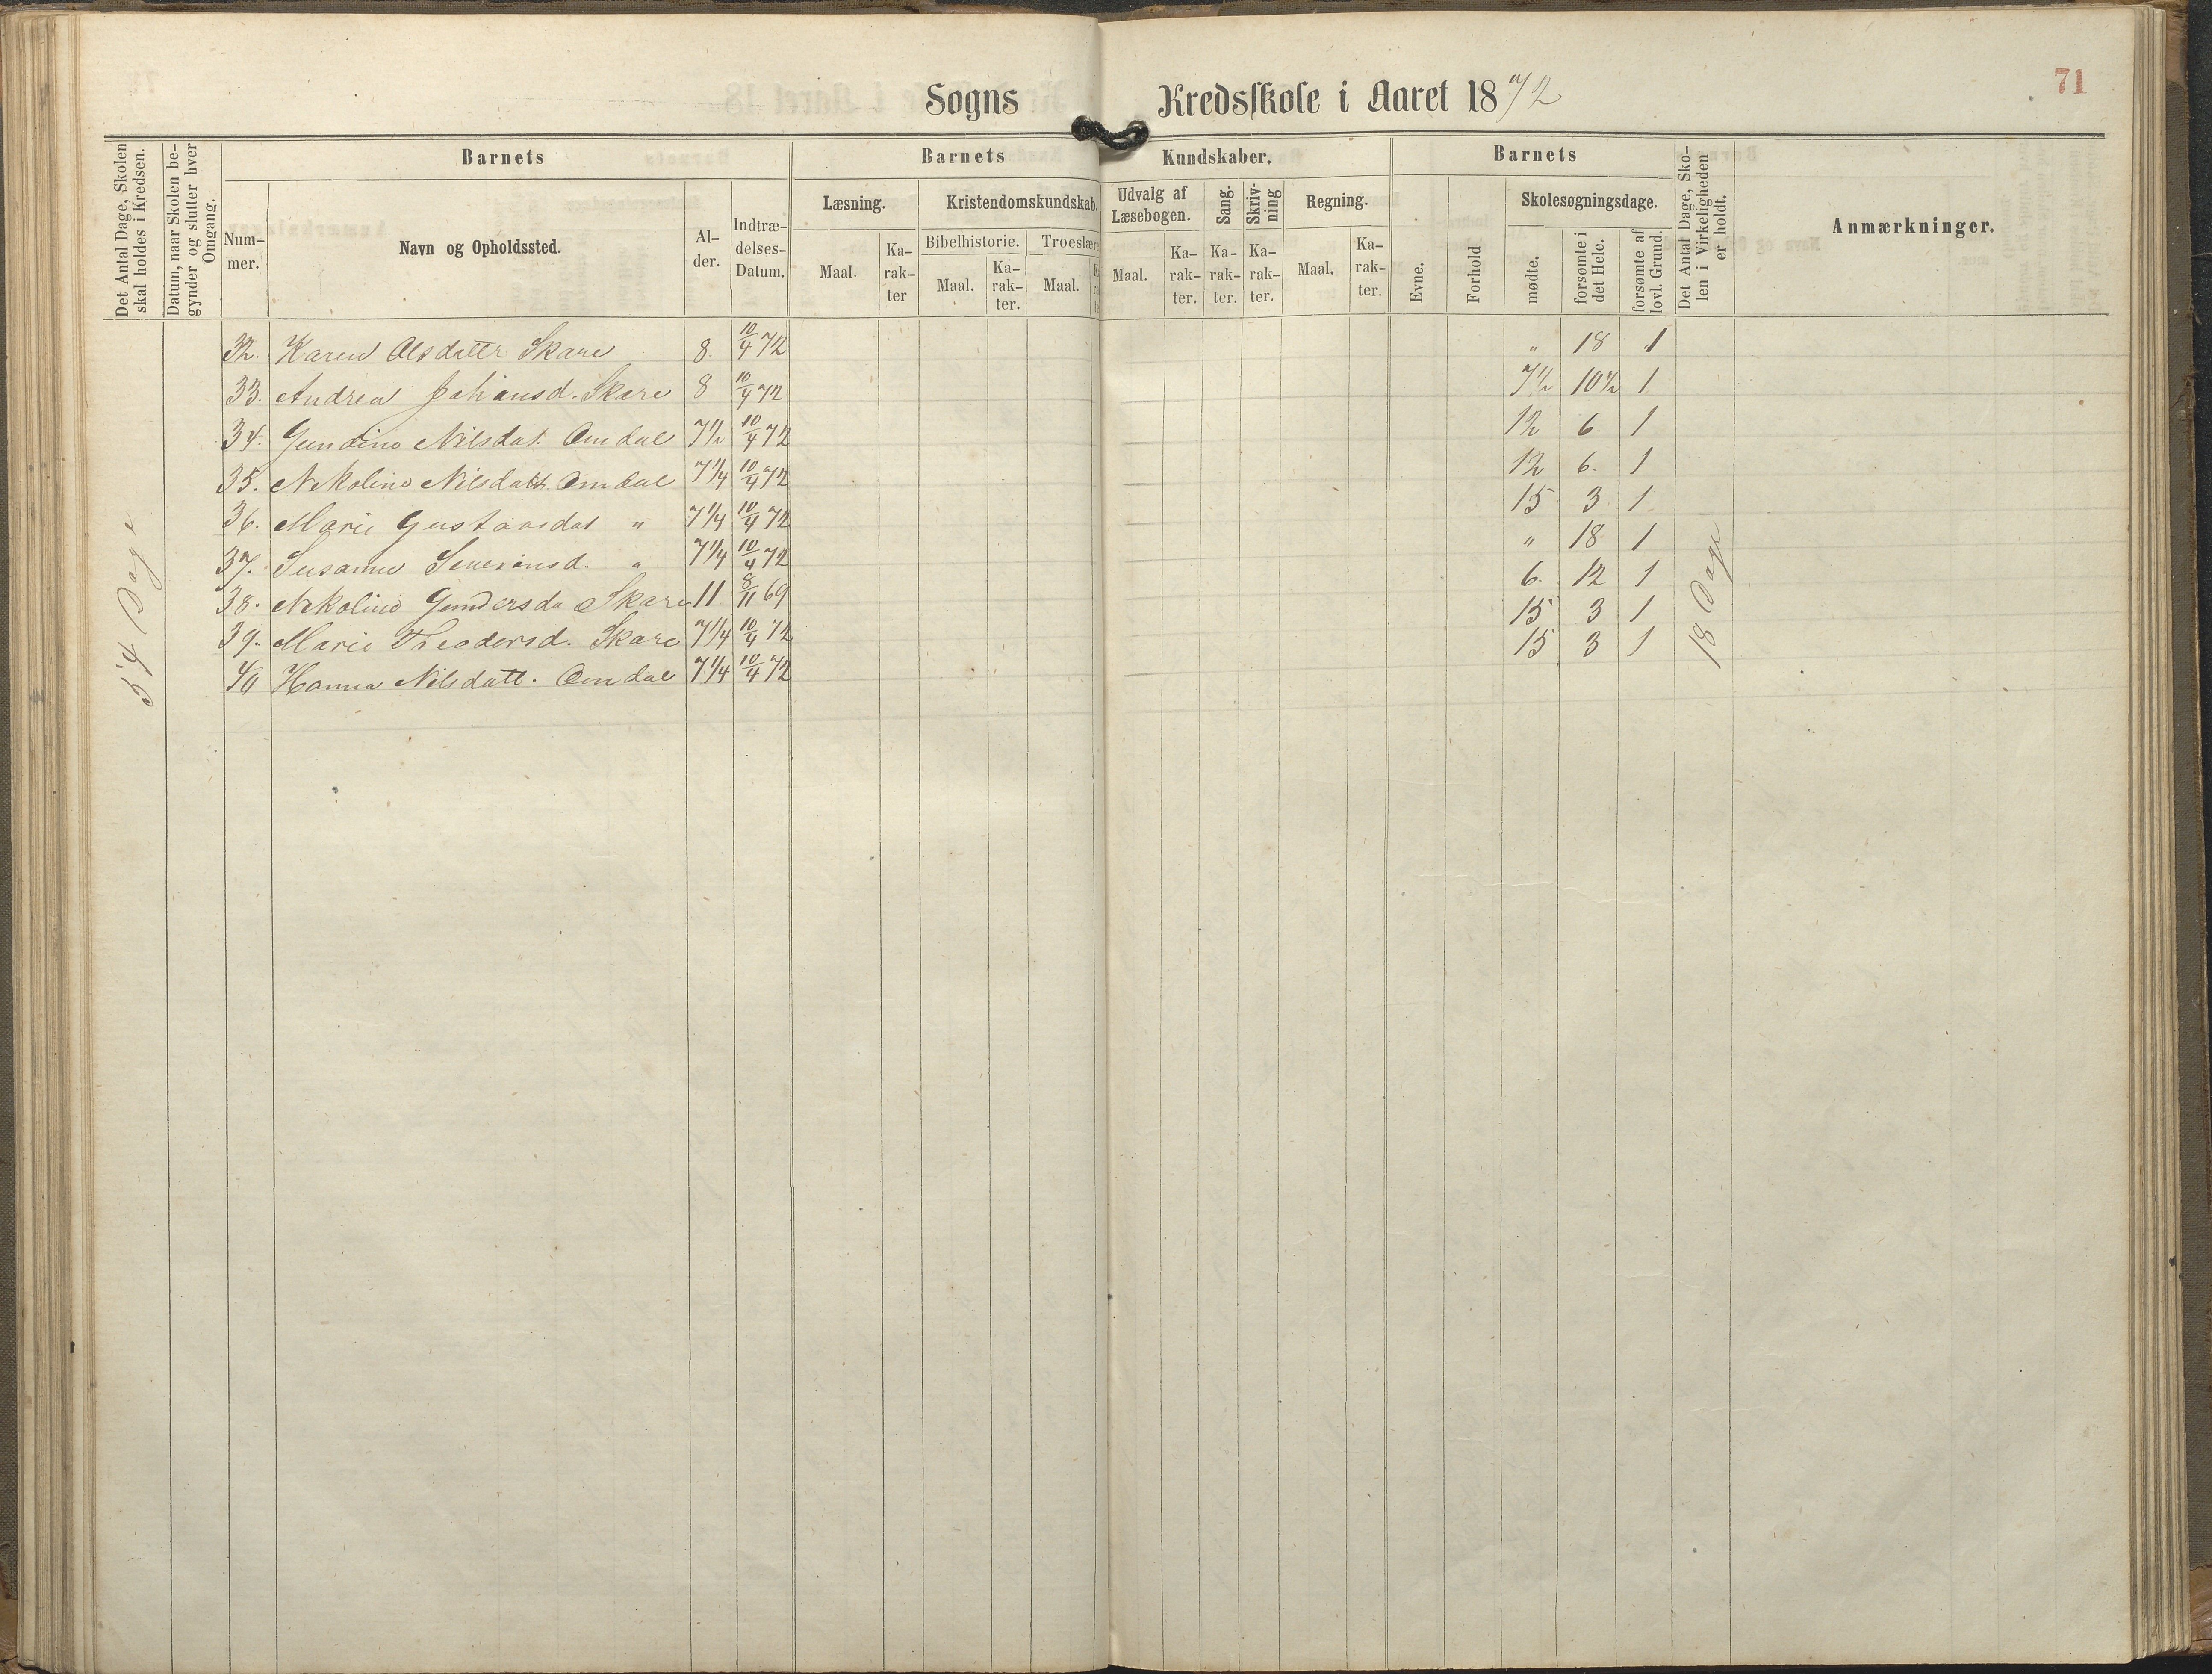 71
Sogns Kredsskole i Aaret 1872
Det Antal Dage, Skolen skal holdes i Kredsen.
Datum, naar Skolen begynder og slutter hver Omgang.
Barnets
Barnets Kundskaber.
Barnets
Det Antal Dage, Skolen i Virkeligheden er holdt.
Anmærkninger.
Nummer.
Navn og Opholdssted.
Alder.
Indtrædelses-Datum.
Læsning.
Kristendomskundskab.
Udvalg af Læsebogen.
Sang.
Skrivning
Regning.
Evne.
Forhold
Skolesøgningsdage.
Maal.
Karakter
Bibelhistorie.
Troeslære
Maal.
Karakter.
Maal.
Maal.
Karakter.
Karakter.
Karakter.
Maal.
Karakter.
mødte.
forsømte i det Hele.
forsømte af lovl. Grund.
54 Dage
32. Karen Olsdattr Skare 8. 10/4 72 " 18 1
33. Andrea Johansd. Skare 8 10/4 72 7 1/2 10 1/2 1
34. Gundine Nilsdat. Omdal 7 1/2 10/4 72 12 6. 1
35. Nikoline Nilsdatt. Omdal 7 1/4 10/4 72 12 6. 1
36. Marie Gustavsdat " 7 1/4 10/4 72 15 3 1
37. Susanne Severinsd. " 7 1/4 10/4 72 " 18 1
38. Nikoline Gundersda Skare 11 8/11 69 6. 12 1
39. Marie Theodorsd. Skare 7 1/4 10/4 72 15 3 1
40 Hanna Nilsdatt. Omdal 7 1/4 10/4 72 15 3 1
18 Dage